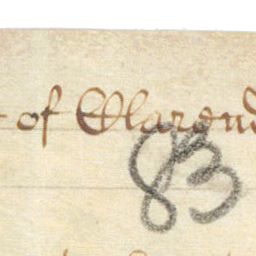 of Clarend
83